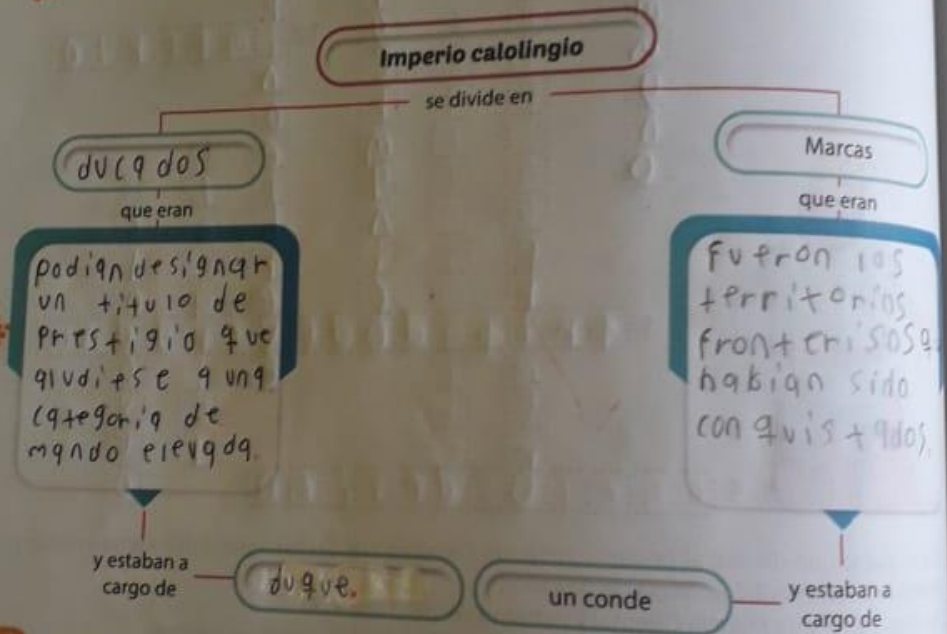 Imperio calolingio
se divide en
ducados
que eran
podian designar
un titulo de
prestigio que
aludiese a una
categoria de
mando elevada.
y estaban a
cargo de
duque.
Marcas
que eran
fueron los
territorios
fronterisos q
habian sido
conquistados.
y estaban a
cargo de
un conde